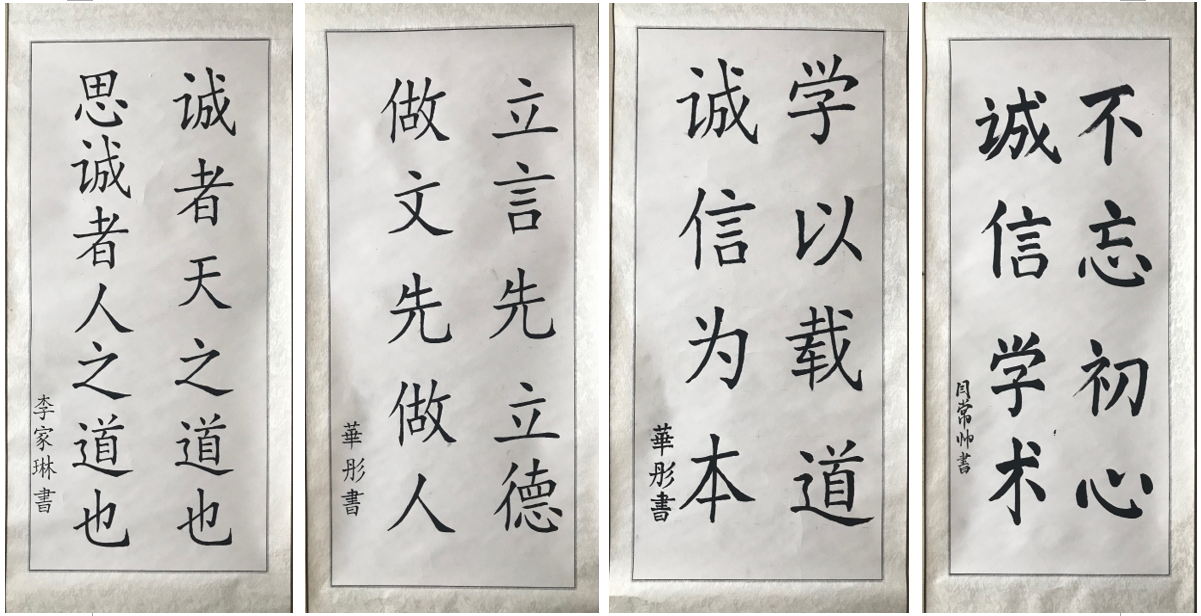 诚者天之道也
思诚者人之道也
李家琳書
立言先立德
做文先做人
華彤書
学以载道
诚信为本
華彤書
不忘初心
诚信学术
闫常帅書